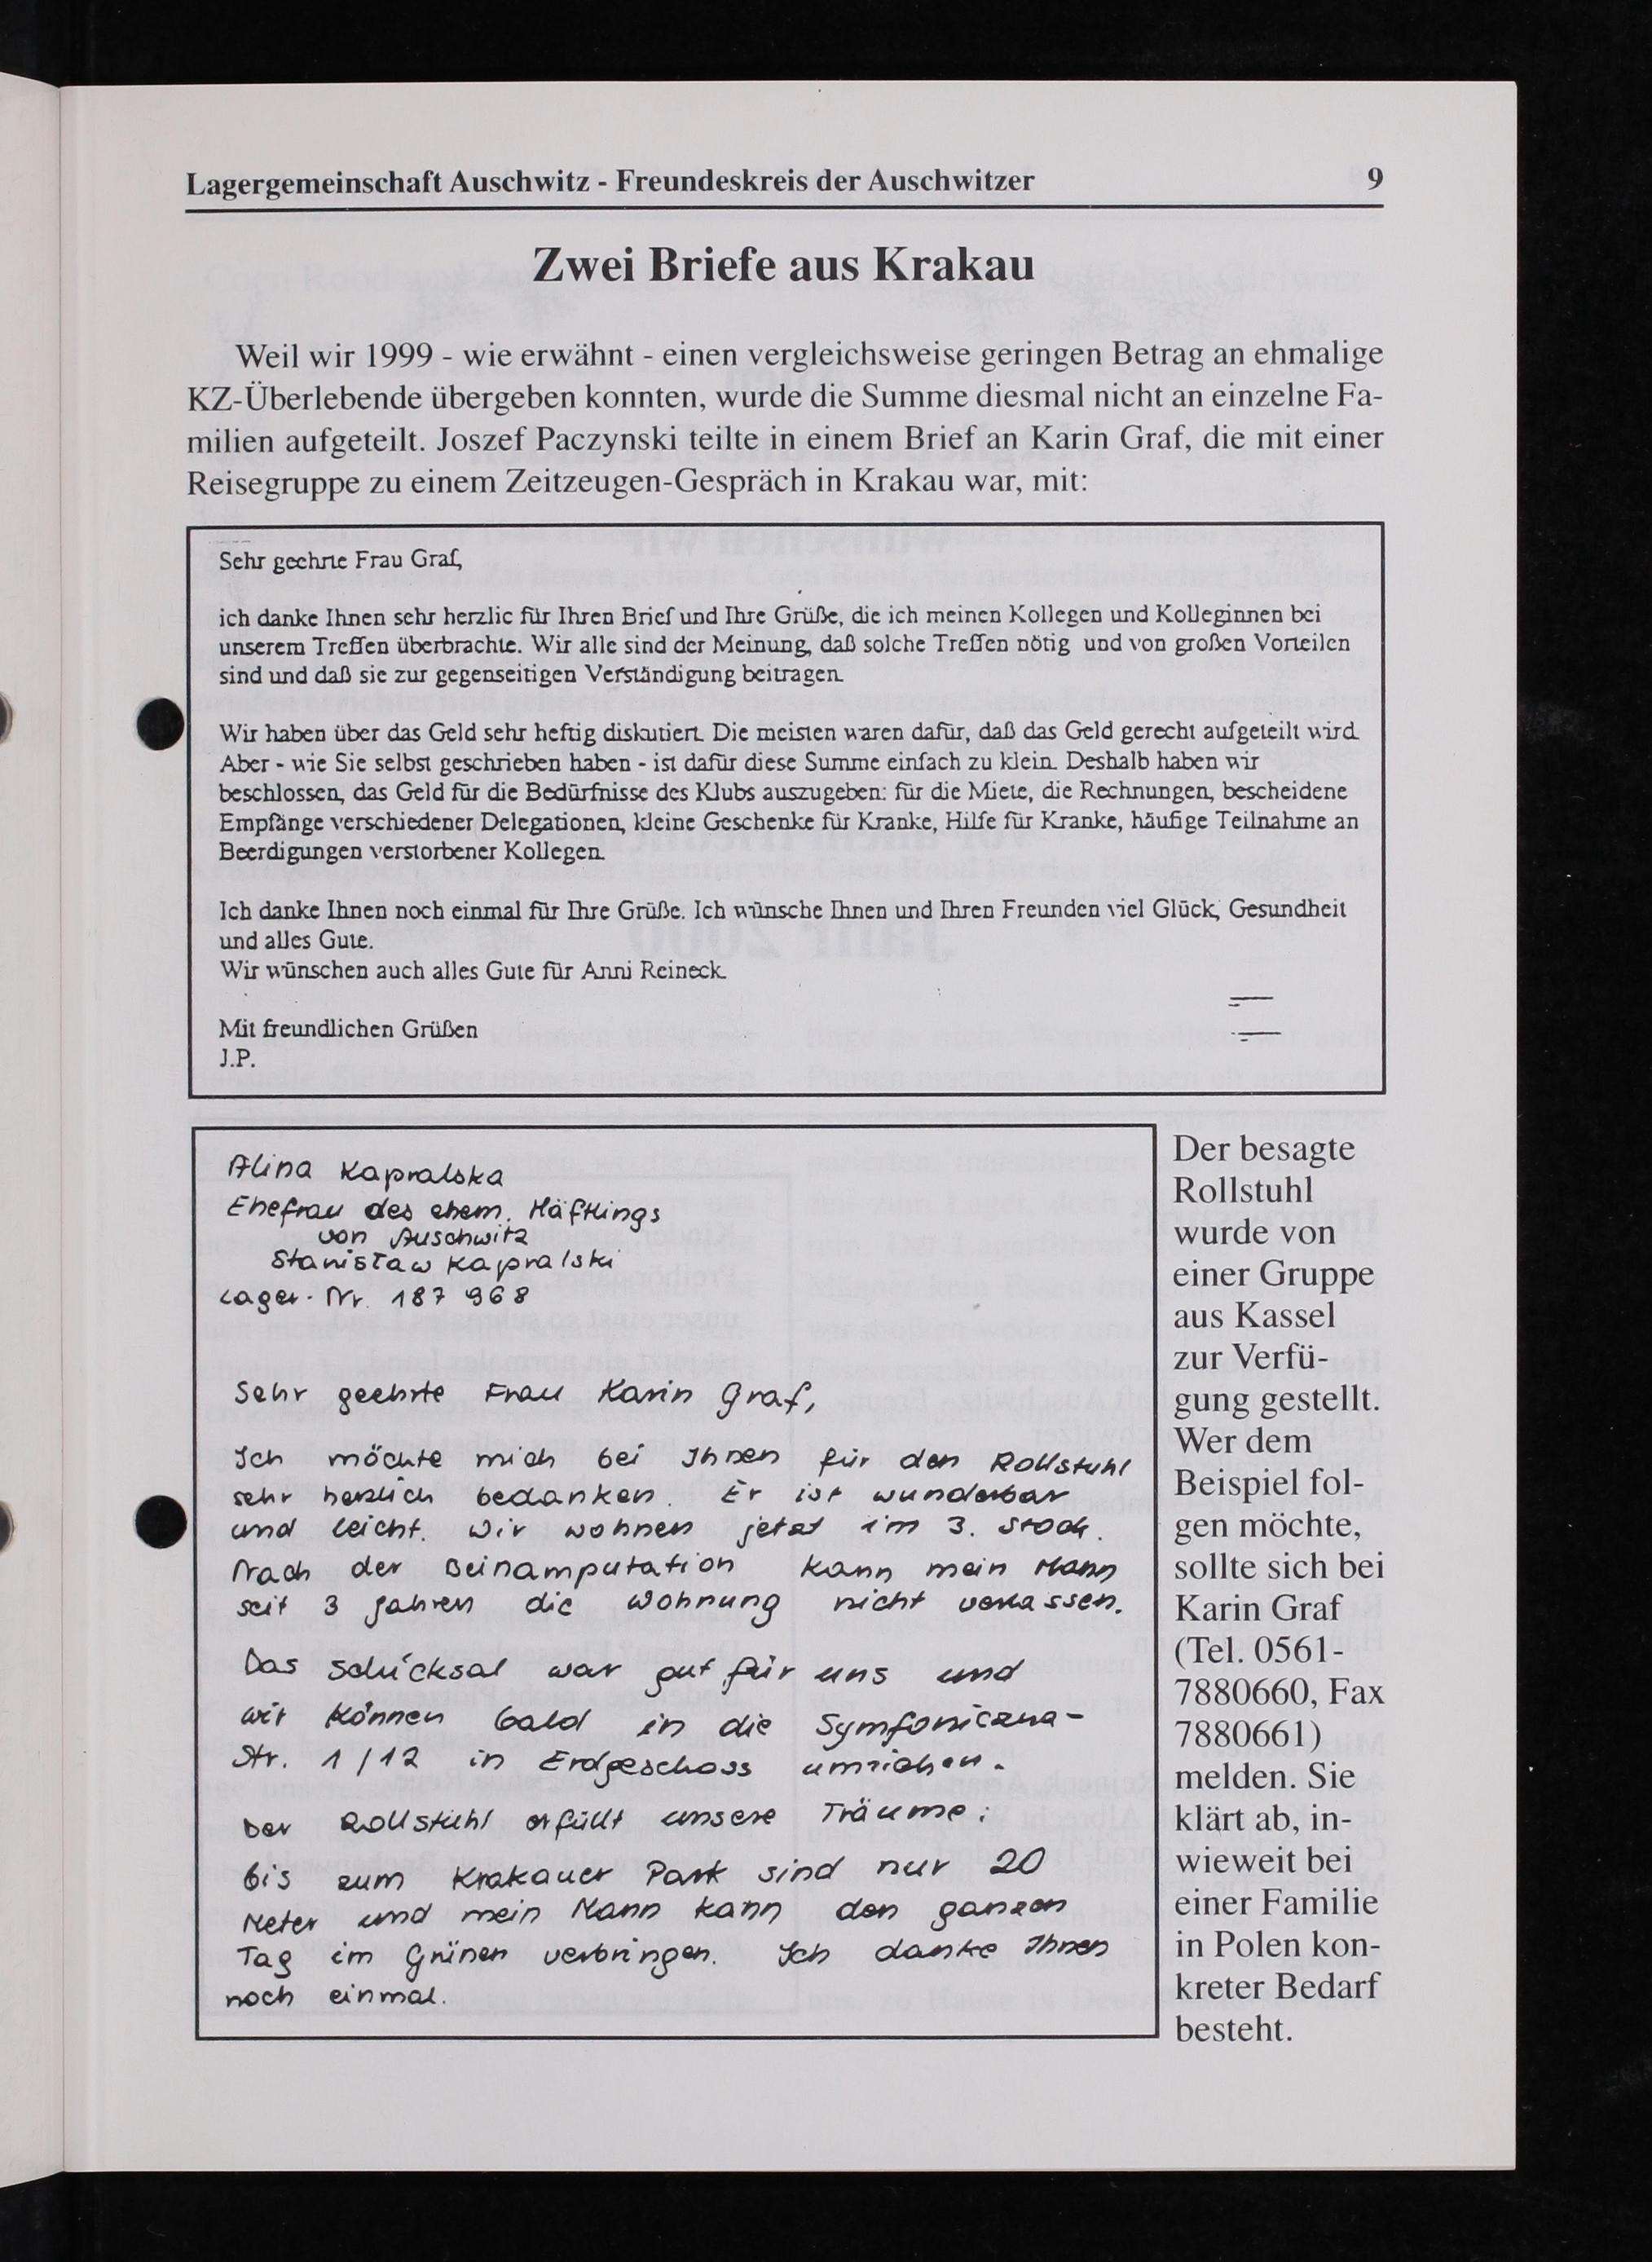 Lagergemeinschaft Auschwitz - Freundeskreis der Auschwitzer 9
Zwei Briefe aus Krakau
Weil wir 1999 - wie erwähnt - einen vergleichsweise geringen Betrag an ehmalige
KZ-Überlebende übergeben konnten, wurde die Summe diesmal nicht an einzelne Fa-
milien aufgeteilt. Joszef Paczynski teilte in einem Brief an Karin Graf, die mit einer
Reisegruppe zu einem Zeitzeugen-Gespräch in Krakau war, mit:
Sehr geehrte Frau Graf,
ich danke Ihnen sehr herzlic für Ihren Brief und Ihre Grüße, die ich meinen Kollegen und Kolleginnen bei
unserem Treffen überbrachte. Wir alle sind der Meinung, daß solche Treffen nötig und von großen Vorteilen
sind und daß sie zur gegenseitigen Verständigung beitragen.
Wir haben über das Geld sehr heftig diskutiert. Die meisten waren dafür, daß das Geld gerecht aufgeteilt wird.
Aber - wie Sie selbst geschrieben haben - ist dafür diese Summe einfach zu klein. Deshalb haben wir
beschlossen, das Geld für die Bedürfnisse des Klubs auszugeben: für die Miete, die Rechnungen, bescheidene
Empfänge verschiedener Delegationen, kleine Geschenke für Kranke, Hilfe für Kranke, häufige Teilnahme an
Beerdigungen verstorbener Kollegen.
Ich danke Ihnen noch einmal für Ihre Grüße. Ich wünsche Ihnen und Ihren Freunden viel Glück, Gesundheit
und alles Gute.
Wir wünschen auch alles Gute für Anni Reineck.
Mit freundlichen Grüßen
J.P.
Alina Kapralska
Ehefrau des ehem. Häftlings
von Auschwitz
Stanisław Kapralski
Lager-Nr. 187 968
Sehr geehrte Frau Karin Graf,
Ich möchte mich bei Ihnen für den Rollstuhl
sehr herzlich bedanken. Er ist wunderbar
und leicht. Wir wohnen jetzt im 3. Stock.
Nach der Beinamputation kann mein Mann
seit 3 Jahren die Wohnung nicht verlassen.
Das Schicksal war gut für uns und
wir können bald in die Symfoniczna-
Str. 1/12 in Erdgeschoss umziehen.
Der Rollstuhl erfüllt unsere Träume:
bis zum Krakauer Park sind nur 20
Meter und mein Mann kann den ganzen
Tag im Grünen verbringen. Ich danke Ihnen
noch einmal.
Der besagte
Rollstuhl
wurde von
einer Gruppe
aus Kassel
zur Verfü-
gung gestellt.
Wer dem
Beispiel fol-
gen möchte,
sollte sich bei
Karin Graf
(Tel. 0561-
7880660, Fax
7880661)
melden. Sie
klärt ab, in-
wieweit bei
einer Familie
in Polen kon-
kreter Bedarf
besteht.